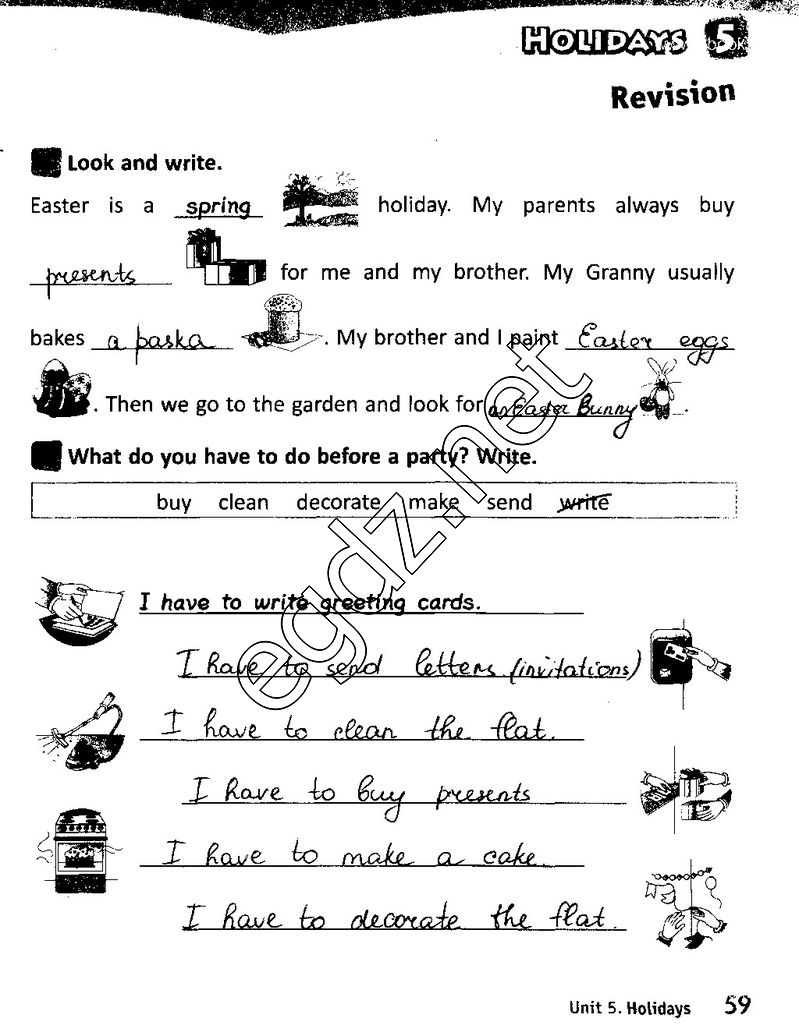 HOLIDAYS 5
Revision
Look and write.
Easter is a spring holiday. My parents always buy
presents for me and my brother. My Granny usually
bakes a paska. My brother and I paint Easter eggs
. Then we go to the garden and look for an Easter Bunny.
What do you have to do before a party? Write.
buy clean decorate make send write
I have to write greeting cards.
I have to send letters (invitations)
I have to clean the flat.
I have to buy presents
I have to make a cake
I have to decorate the flat.
egdz.net
Unit 5. Holidays 59